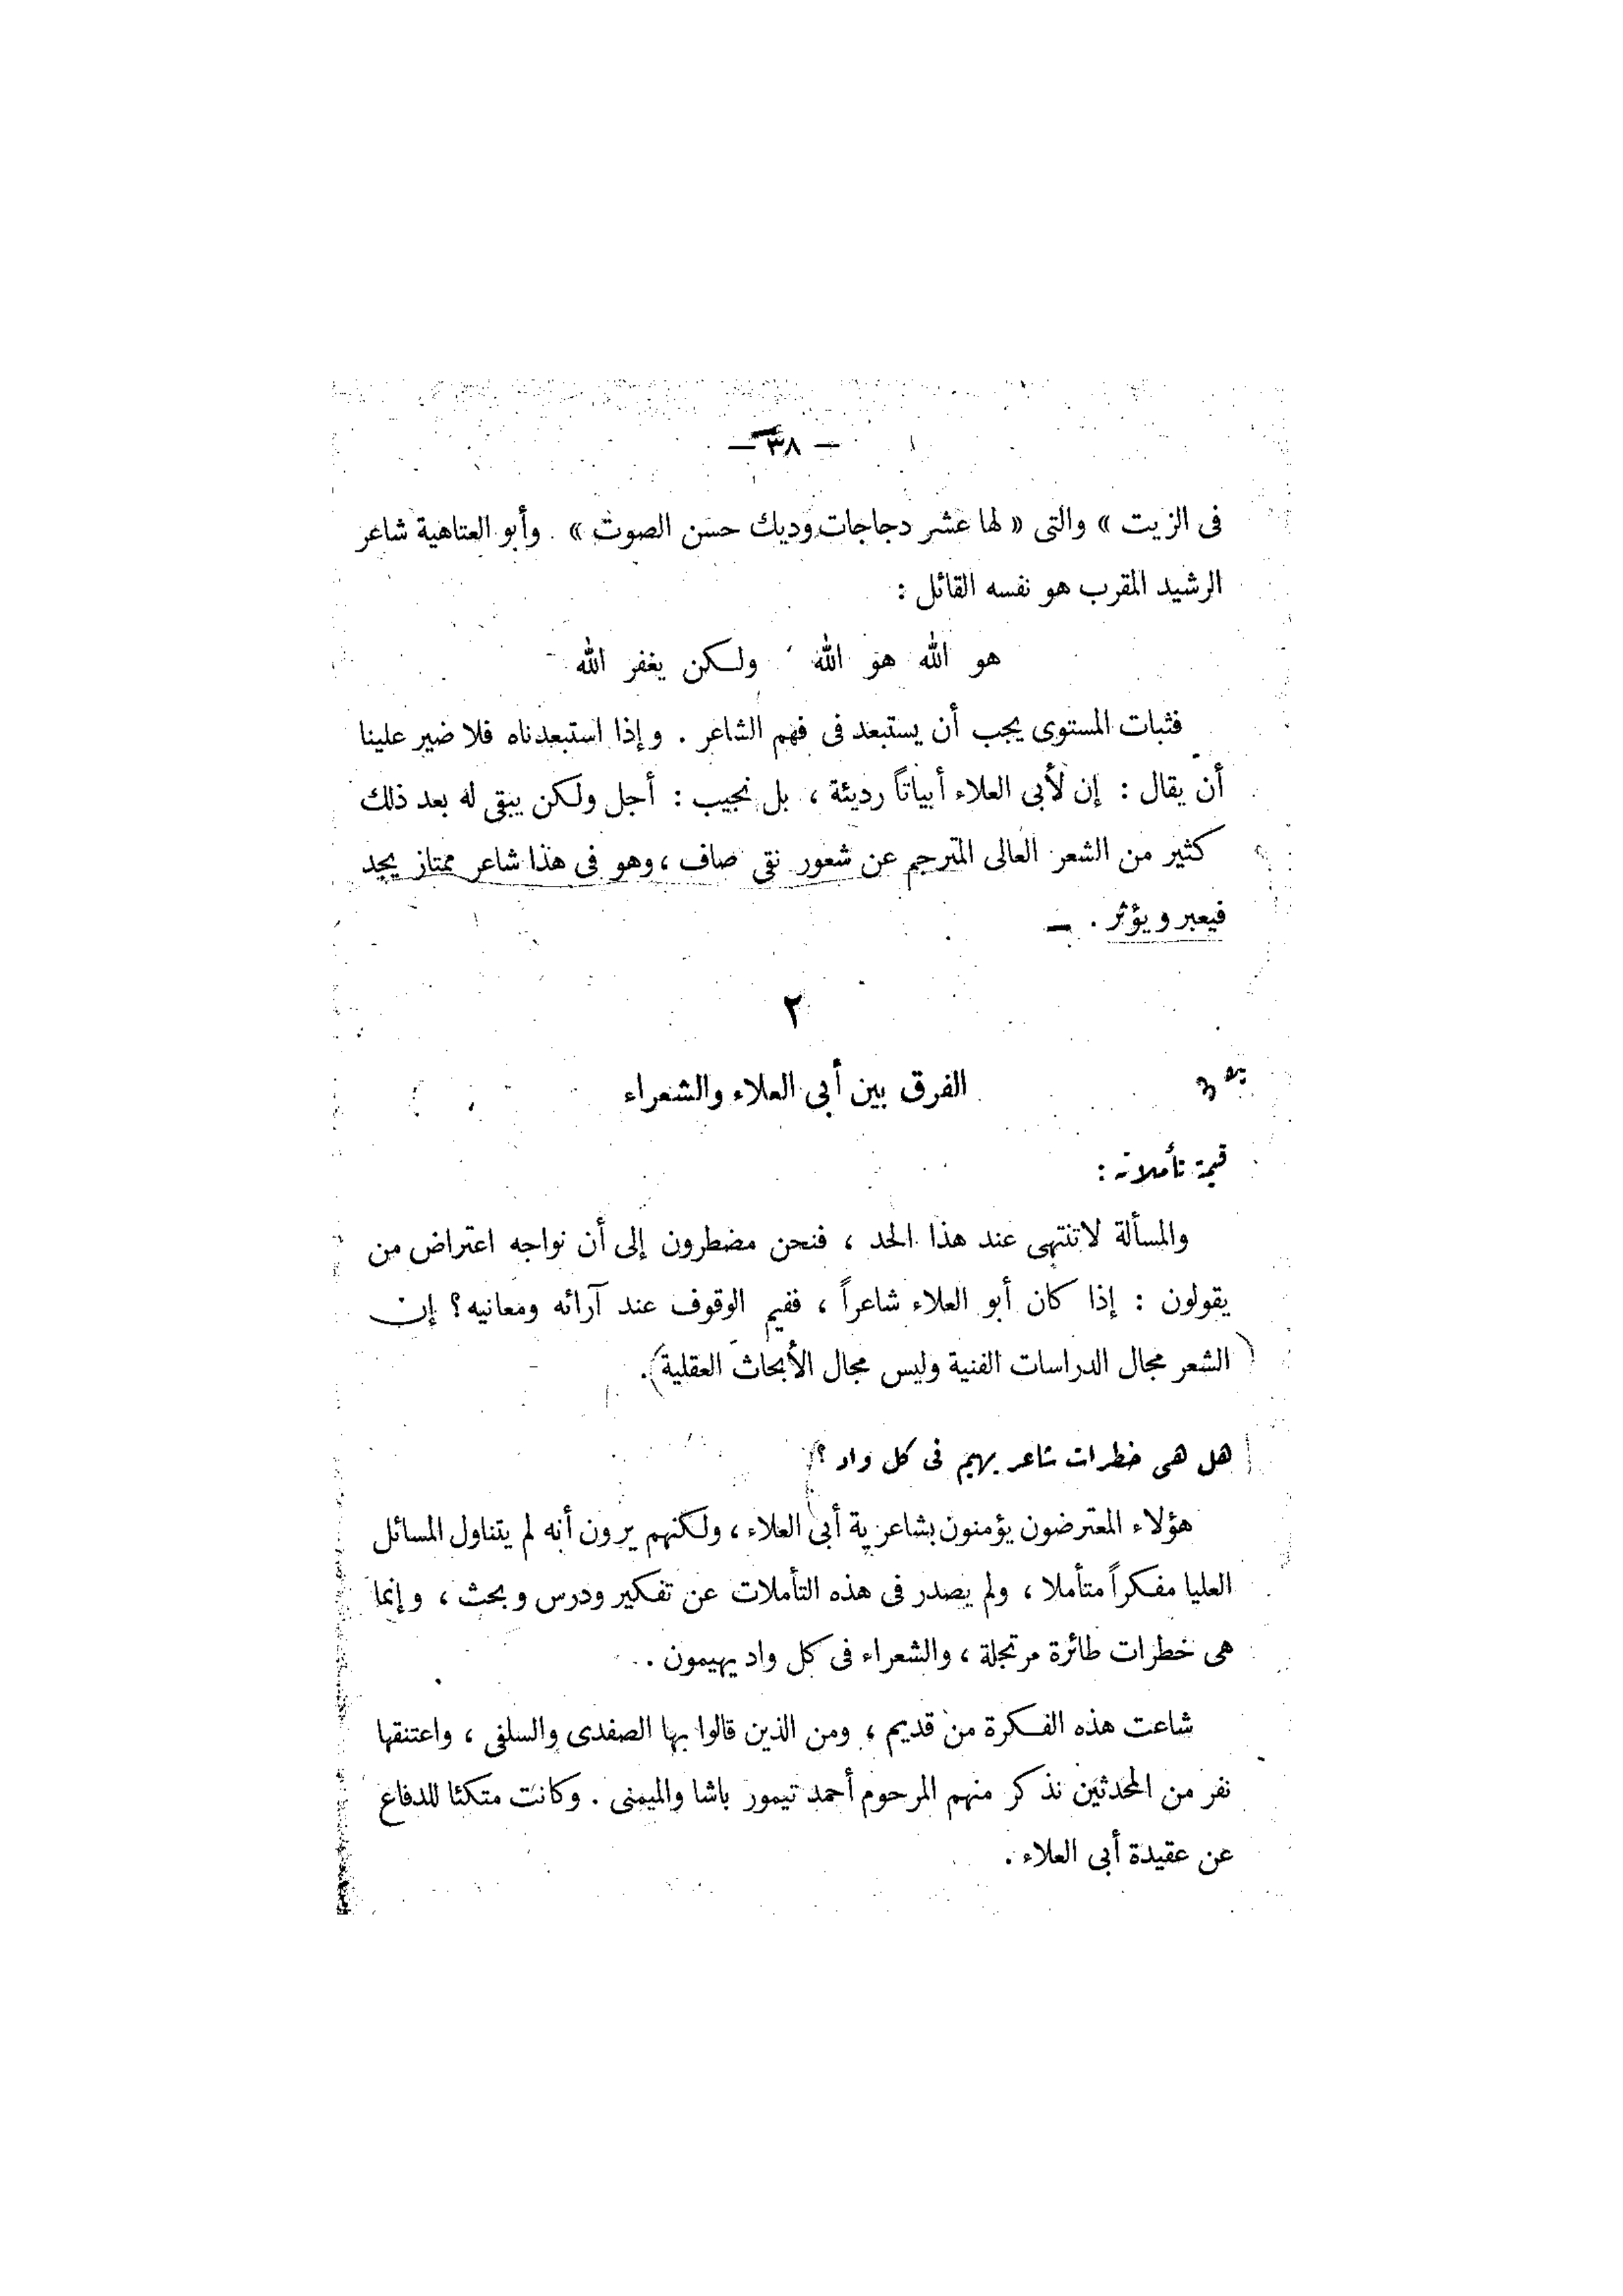 — ٣٨ —
فى الزيت » والتى « لها عشر دجاجات وديك حسن الصوت » . وأبو العتاهية شاعر
الرشيد المقرب هو نفسه القائل :
هو الله هو الله ولكن يغفر الله
فثبات المستوى يجب أن يستبعد فى فهم الشاعر . وإذا استبعدناه فلا ضير علينا
أن يقال : إن لأبى العلاء أبياتاً رديئة ، بل نجيب : أجل ولكن يبقى له بعد ذلك
كثير من الشعر العالى المترجم عن شعور نقى صاف ، وهو فى هذا شاعر ممتاز يجد
فيعبر ويؤثر .
٢
الفرق بين أبى العلاء والشعراء
قيمة تأملاته :
والمسألة لا تنتهى عند هذا الحد ، فنحن مضطرون إلى أن نواجه اعتراض من
يقولون : إذا كان أبو العلاء شاعراً ، ففيم الوقوف عند آرائه ومعانيه ؟ إن
الشعر مجال الدراسات الفنية وليس مجال الأبحاث العقلية .
هل هى خطرات شاعر يهيم فى كل واد ؟
هؤلاء المعترضون يؤمنون بشاعرية أبى العلاء ، ولكنهم يرون أنه لم يتناول المسائل
العليا مفكراً متأملا ، ولم يصدر فى هذه التأملات عن تفكير ودرس وبحث ، وإنما
هى خطرات طائرة مرتجلة ، والشعراء فى كل واد يهيمون .
شاعت هذه الفكرة من قديم ، ومن الذين قالوا بها الصفدى والسلفى ، واعتنقها
نفر من المحدثين نذكر منهم المرحوم أحمد تيمور باشا والميمنى . وكانت متكئا للدفاع
عن عقيدة أبى العلاء .